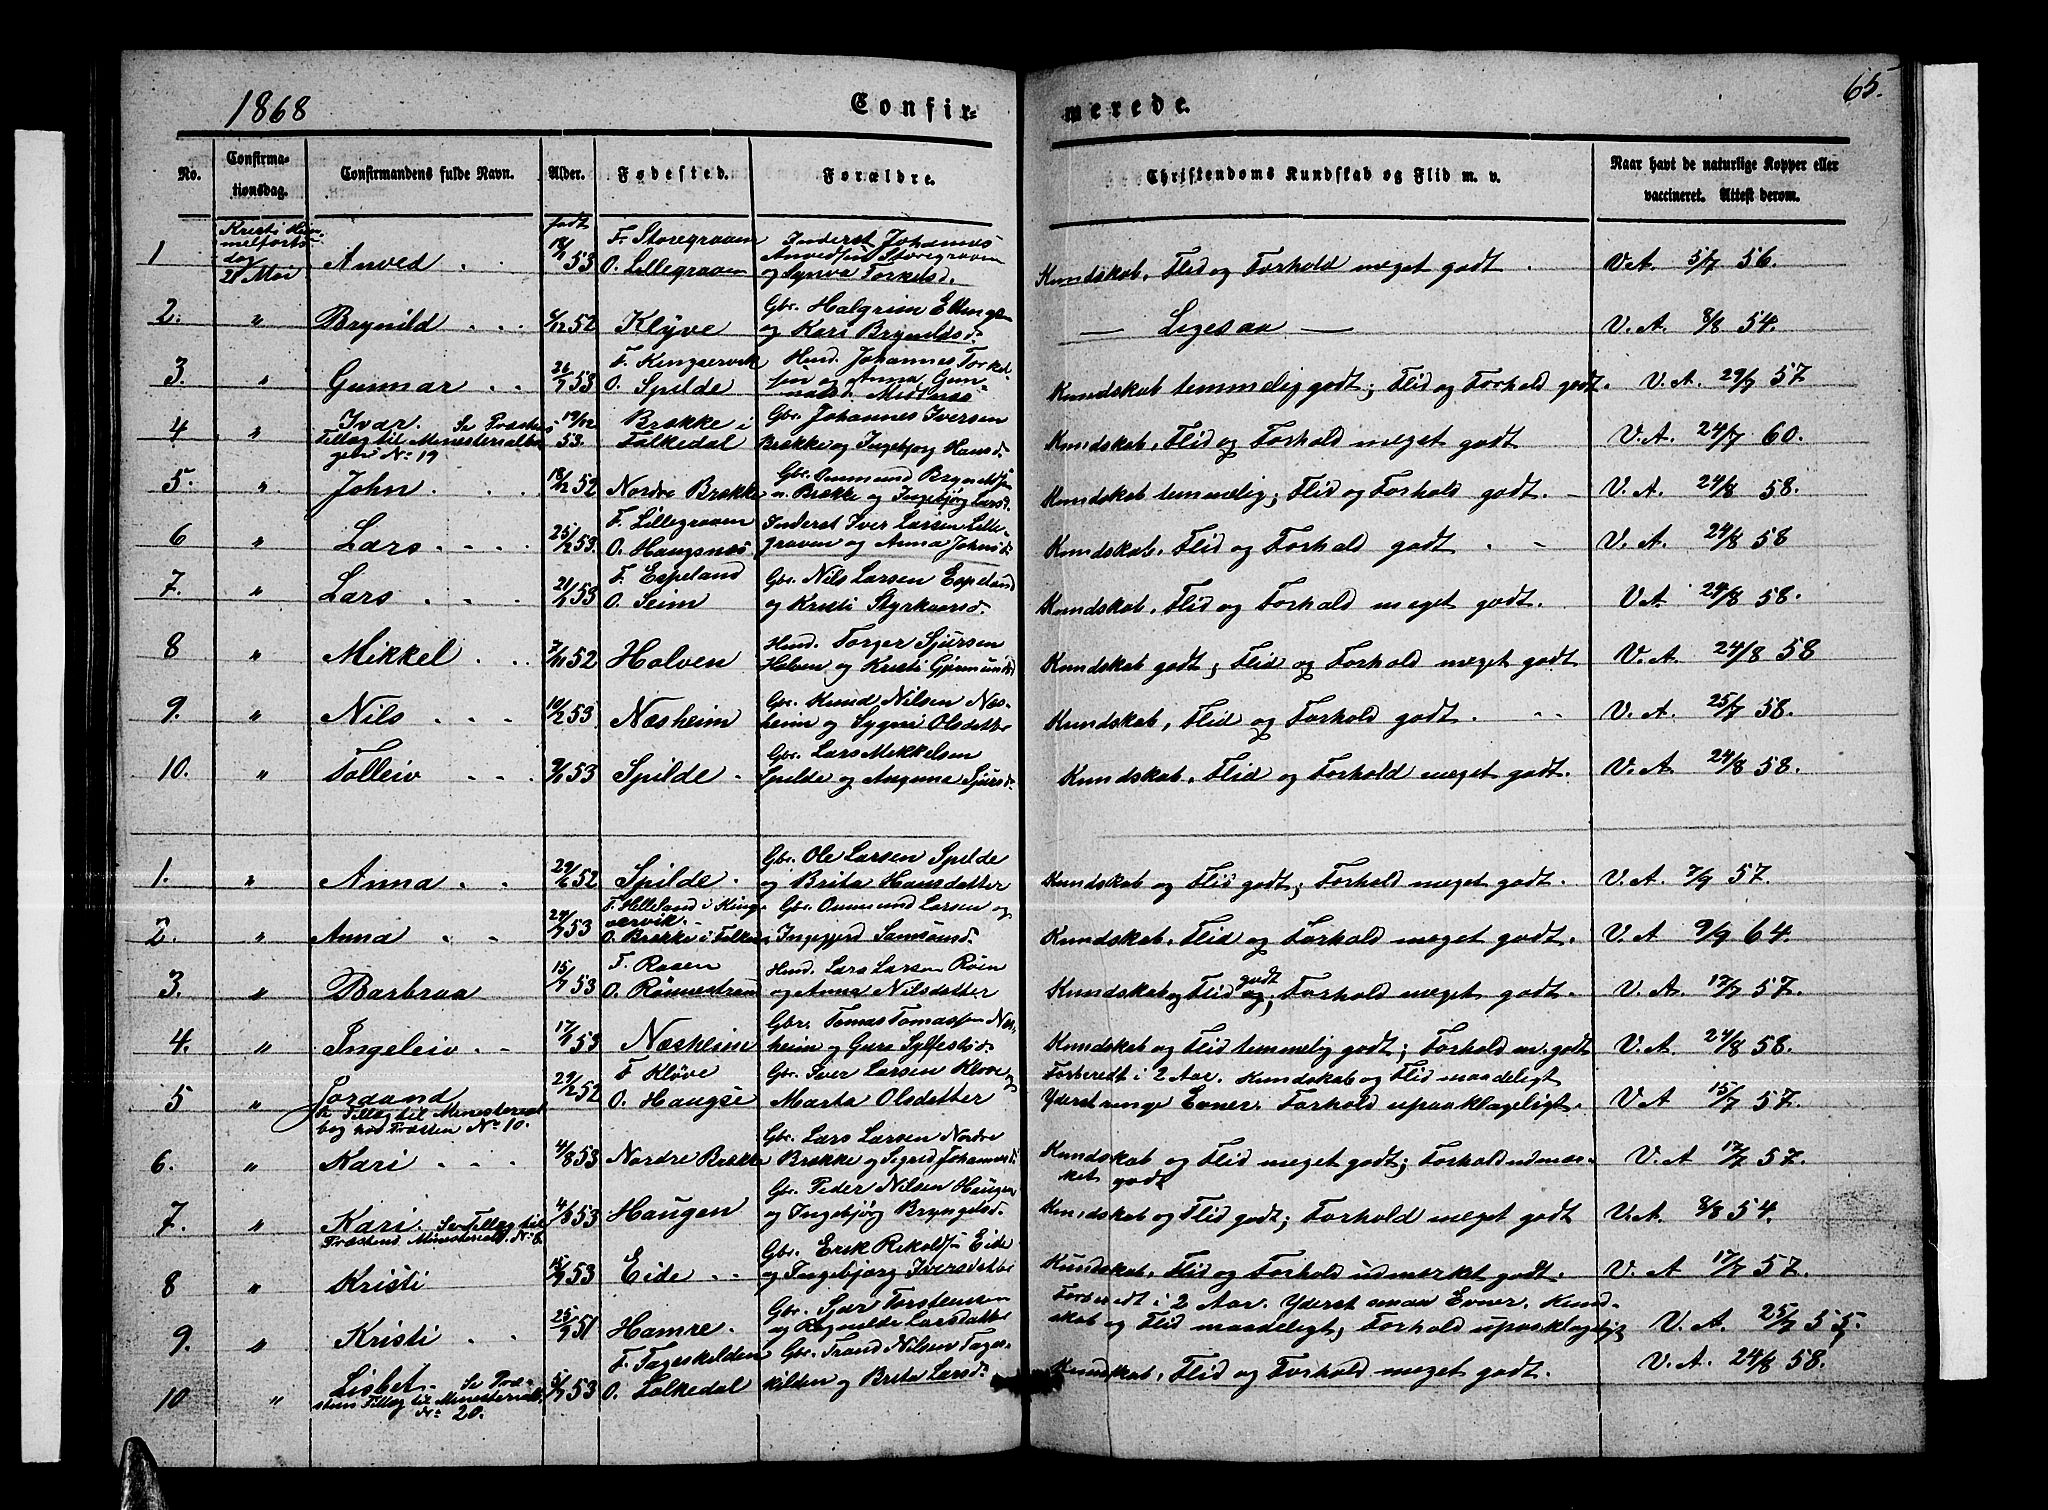 1868 Confirmerede. 65.
No. Confirmationsdag. Confirmandens fulde Navn. Alder. Fødested. Forældre. Christendoms Kundskab og Flid m. v. Naar havt de naturlige Kopper eller vaccineret. Attest derom.
født
1 Kristi Himmelfartsdag 21 Mai Anved F. Storegraven O. Lillegraven Inderst Johannes Anvedsen Storegraven og Synva Torkelsd. Kundskab, Flid og Forhold meget godt. V.A. 5/7 56.
2. " Brynild 52 Klÿve Gbr. Halgrim Ellings. og Kari Bryndlsd. — Ligesaa — V. A. 8/8 54.
3. " Gunnar 26/7 53 F. Kingservik O. Spilde Hmd. Johannes Torkelsen og Anna Gunnarsd. Midtnæs Kundskab temmelig godt; Flid og Forhold godt. V. A. 29/7 57
4 " Ivar. Se Præstens Tillæg til Ministerialbogen No 19 19/12 53. Brække i Folkedal Gbr. Johannes Iversen Brække og Ingebjorg Hansd. Kundskab, Flid og Forhold meget godt V. A. 24/7 60.
5. " John. 18/12 52 Nordre Brække Gbr. Ommund Bryndlsen n. Brække og Ingebjørg Larsd. Kundskab temmelig; Flid og Forhold godt. V. A. 24/8 58.
6 " Lars 25/2 53. F. Lillegraven O. Haugsnæs Inderst Iver Larsen Lillegraven og Anna Johnsd. Kundskab, Flid og Forhold godt. V. A. 24/8 58
7. " Lars 21/1 53 F. Espeland O. Seim Gbr. Nils Larsen Espeland og Kristi Styrkaarsd. Kundskab, Flid og Forhold meget godt. V.A. 24/8 58.
8 " Mikkel 7/11 52 Halven Hmd. Torger Sjursen Halven og Kristi Gjermundsd. Kundskab godt; Flid og Forhold meget godt V. A. 24/8 58
9. " Nils 10/2 53 Næsheim Gbr. Knud Nilsen Næsheim og Sygni Olsdatter Kundskab, Flid og Forhold godt. V. A. 25/7 58.
10. " Tolleiv 9/1 53 Spilde Gbr. Lars Mikkelsen Spilde og Angunna Sjursd. Kundskab, Flid og Forhold meget godt. V. A. 24/8 58.
1. " Anna 29/6 52 Spilde. Gbr. Ole Larsen Spilde og Brita Hansdatter Kundskab og Flid godt; Forhold meget godt. V. A. 7/9 57.
2. " Anna 53 F. Helleland i Kingservik O. Brække i Folked. Gbr. Ommund Larsen og Ingegjerd Samsonsd. Kundskab, Flid og Forhold meget godt. V. A 9/9 64.
3. " Barbraa 15/7 53 F. Raaen O. Rønnestrand Hmd. Lars Larsen Røen og Anna Nilsdatter Kundskab og Flid godt; Forhold meget godt. V. A. 17/7 57.
4. " Ingeleiv 53 Næsheim Gbr. Tomas Tomassen Næsheim og Guro Sylfestsd. Kundskab og Flid temmelig godt; Forhold m. godt V. A. 24/8 58.
5 " Jordand Se Tillæg til Ministerialbog hos Præsten No 10. 29/12 52 F. Kløve O. Haugse Gbr. Iver Larsen Kløve og Marta Olsdatter Forberedt i 2 Aar. Kundskab og Flid maadeligt Yderst ringe Evner. Forhold upaaklageligt. V. A 15/7 57.
6. " Kari 4/8 53 Nordre Brække Gbr. Lars Larsen Nordre Brække og Sigrid Johannesd. Kundskab og Flid meget godt; Forhold udmærket godt V. A 17/7 57.
7. " Kari. Se Tillæg til Præstens Ministerialb. No 8. 53 Haugen Gbr. Peder Nilsen Haugen og Ingebjørg Bryngelsd. Kundskab og Flid godt; Forhold meget godt V. A. 8/8 54.
8 " Kristi 53 Eide Gbr. Erik Rikoldsen Eide og Ingebjørg Iversdatter Kundskab, Flid og Forhold udmærket godt. V. A 17/7 57.
9. " Kristi 25/7 51 Hamre. Gbr. Sjur Torstensen og Ragnilde Larsdatter Forberedt i 2 Aar. Yderst smaa Evner. Kundskab og Flid maadeligt; Forhold upaaklageligt V. A. 25/7 55.
10 " Lisbet. Se Præstens Tillæg til Ministerialb. No 20. 53 F. Tageskilden O. Folkedal Gbr. Trond Nilsen Tageskilden og Brita Larsd. Kundskab, Flid og Forhold meget godt. V. A. 24/8 58.